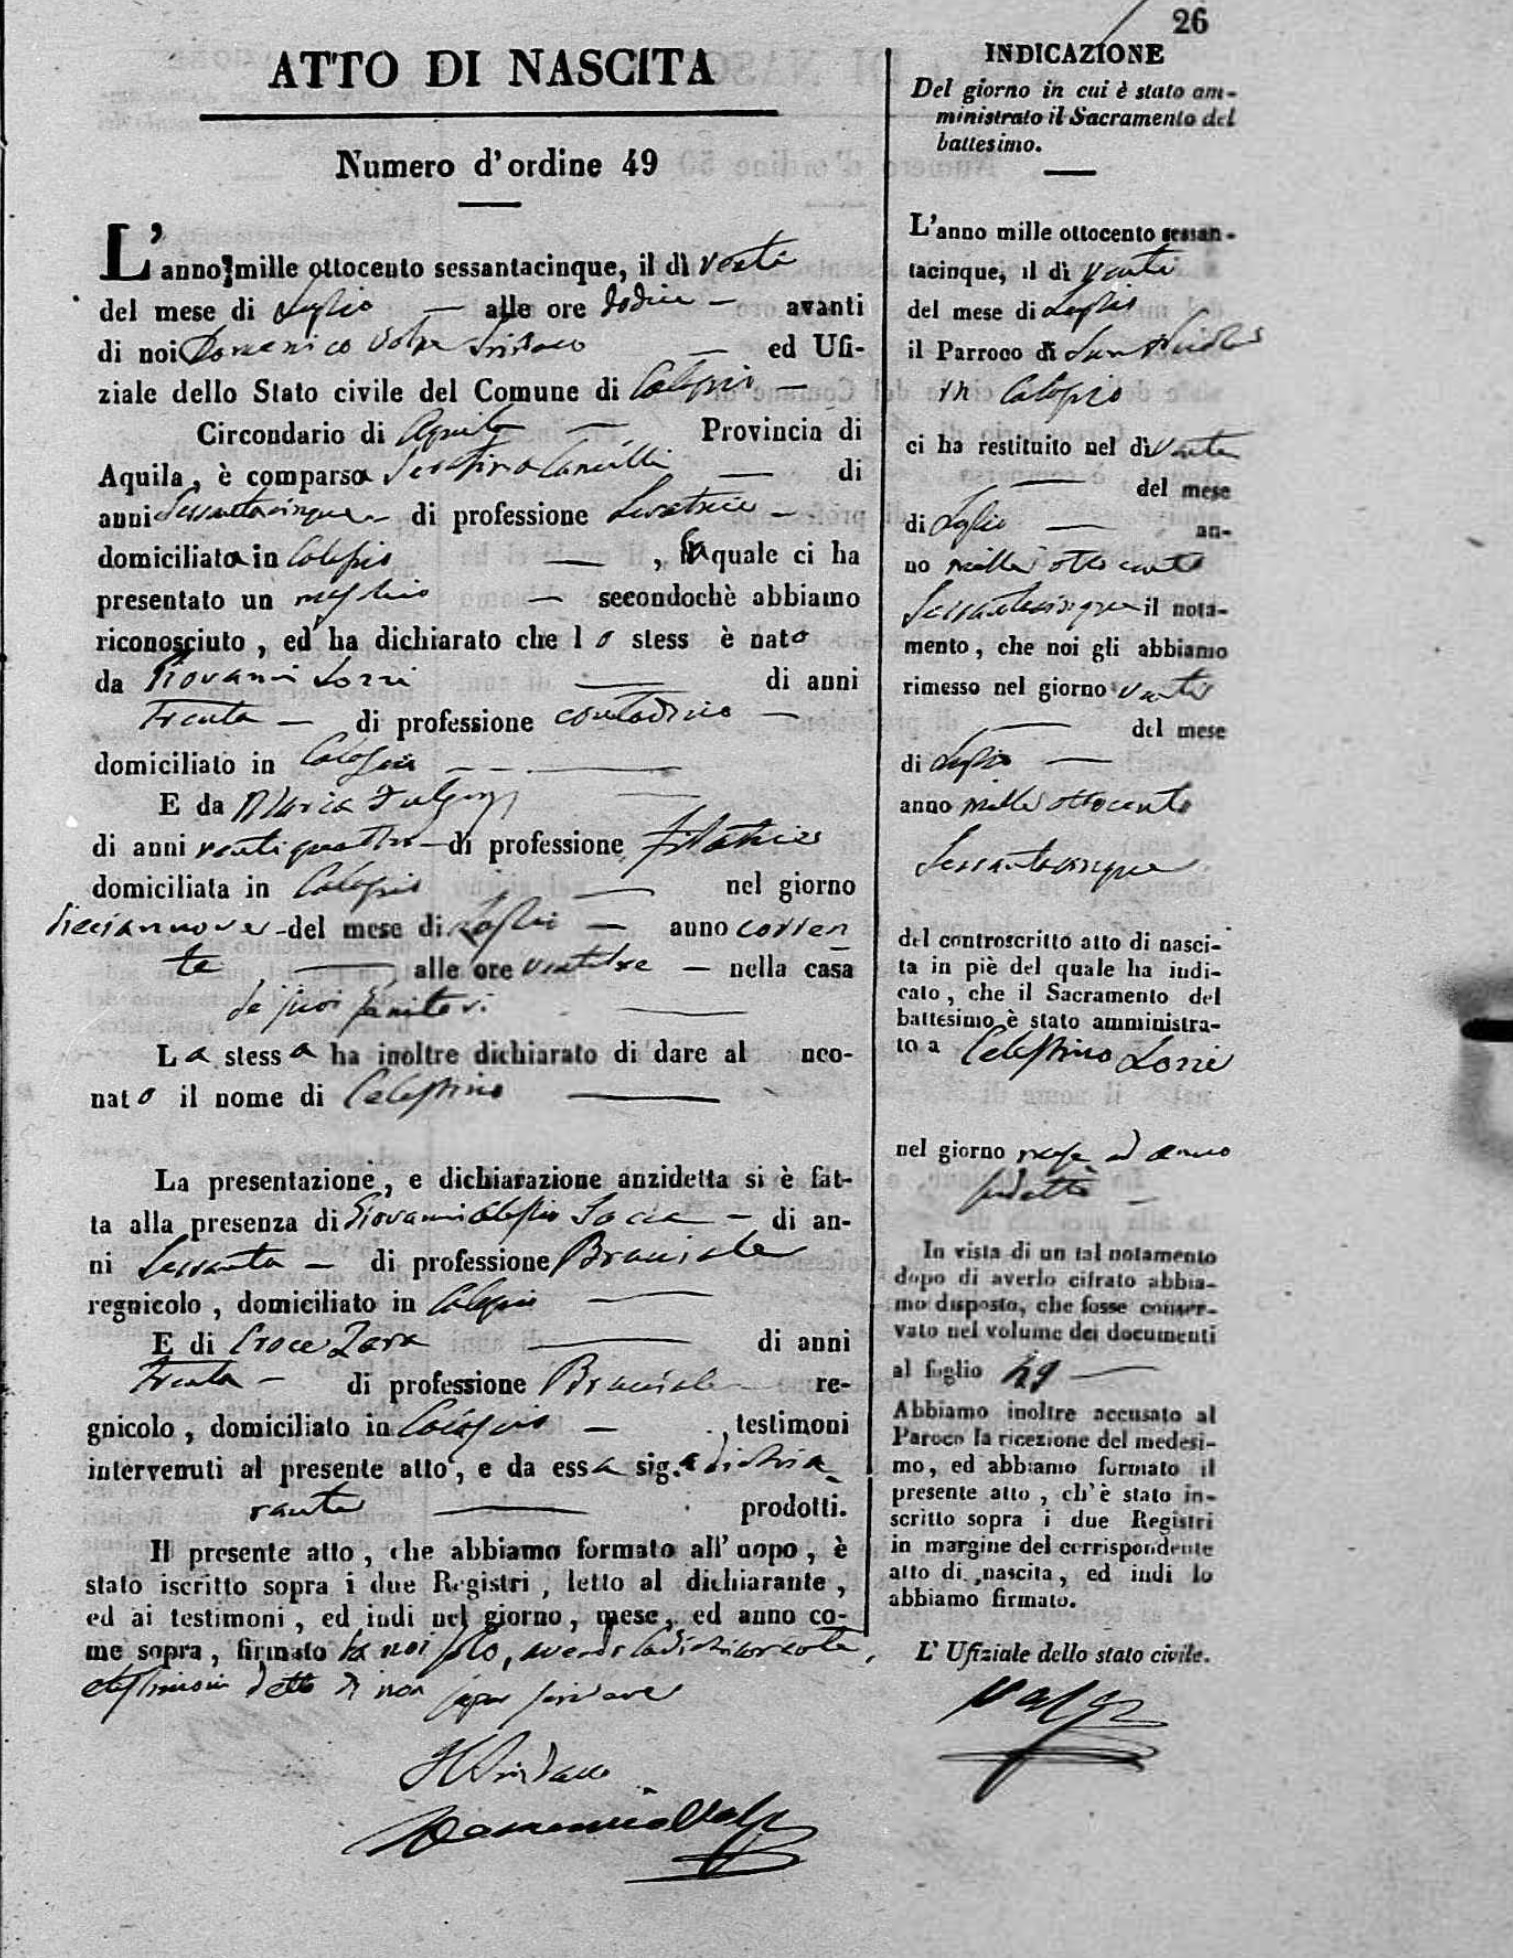 26
ATTO DI NASCITA
Numero d'ordine 49
L'anno mille ottocento sessantacinque, il dì venti
del mese di Luglio — alle ore dodici — avanti
di noi Domenico Volpe Sindaco — ed Ufi-
ziale dello Stato civile del Comune di Calascio —
Circondario di Aquila — Provincia di
Aquila, è comparsa Serafina — di
anni Sessantacinque — di professione Levatrice —
domiciliata in Calascio — , la quale ci ha
presentato un maschio — secondochè abbiamo
riconosciuto, ed ha dichiarato che lo stess è nato
da Giovanni — di anni
Trenta — di professione contadino —
domiciliato in Calascio —
E da Maria —
di anni ventiquattro — di professione filatrice
domiciliata in Calascio — nel giorno
diciannove — del mese di Luglio — anno corren-
te — alle ore ventitre — nella casa
de suoi genitori —
La stessa ha inoltre dichiarato di dare al neo-
nato il nome di Celestino —
La presentazione, e dichiarazione anzidetta si è fat-
ta alla presenza di Giovanni — di an-
ni Sessanta — di professione Bracciale
regnicolo, domiciliato in Calascio —
E di Croce Zara — di anni
Trenta — di professione Bracciale — re-
gnicolo, domiciliato in Calascio — , testimoni
intervenuti al presente atto, e da essa sig.a dichia-
rante — prodotti.
Il presente atto, che abbiamo formato all'uopo, è
stato iscritto sopra i due Registri, letto al dichiarante,
ed ai testimoni, ed indi nel giorno, mese, ed anno co-
me sopra, firmato da noi solo, avendo la dichiarante,
e testimoni detto di non saper scrivere
Il Sindaco
Domenico Volpe
INDICAZIONE
Del giorno in cui è stato am-
ministrato il Sacramento del
battesimo.
L'anno mille ottocento sessan-
tacinque, il dì venti
del mese di Luglio
il Parroco di San Nicola
in Calascio
ci ha restituito nel dì venti
— del mese
di Luglio — an-
no mille otto cento
Sessantacinque il nota-
mento, che noi gli abbiamo
rimesso nel giorno venti
— del mese
di Luglio —
anno mille ottocento
Sessantacinque
del controscritto atto di nasci-
ta in piè del quale ha indi-
cato, che il Sacramento del
battesimo è stato amministra-
to a Celestino
nel giorno mese ed anno
sudetto —
In vista di un tal notamento
dopo di averlo cifrato abbia-
mo disposto, che fosse conser-
vato nel volume dei documenti
al foglio 49 —
Abbiamo inoltre accusato al
Paroco la ricezione del medesi-
mo, ed abbiamo formato il
presente atto, ch'è stato in-
scritto sopra i due Registri
in margine del corrispondente
atto di nascita, ed indi lo
abbiamo firmato.
L'Ufiziale dello stato civile.
Volpe